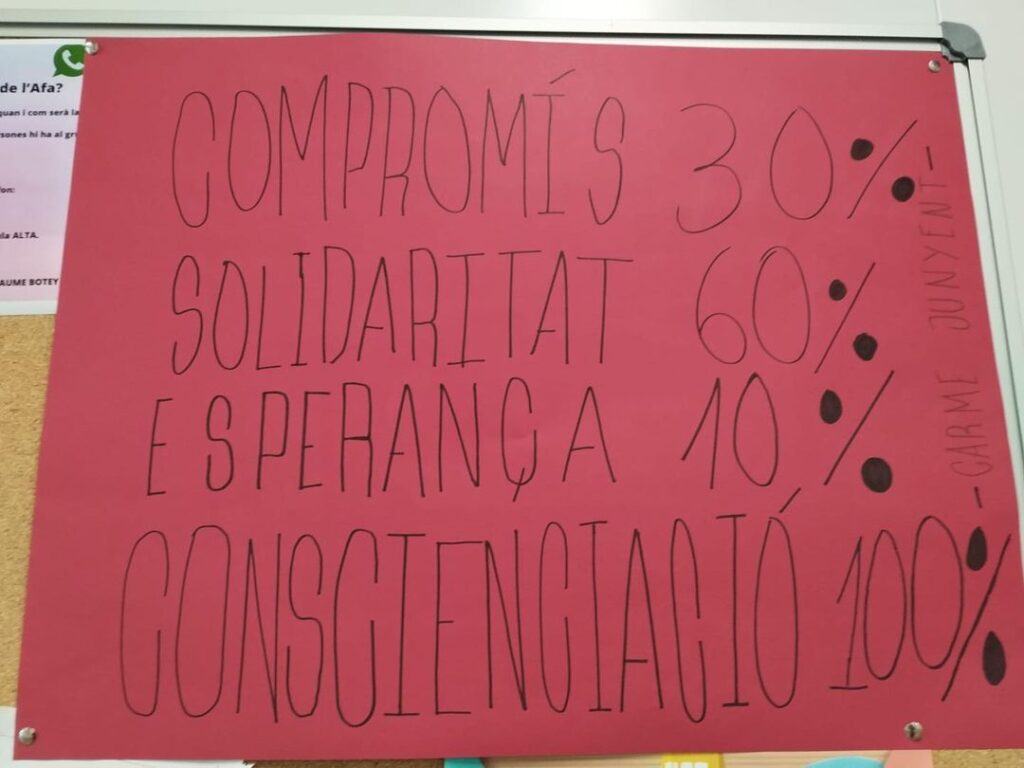 de l'Afa?
quan i com serà la
sones hi ha al gr
fon:
la ALTA.
AUME BOTEY
COMPROMÍS 30%
SOLIDARITAT 60%
ESPERANÇA 10%
CONSCIENCIACIÓ 100%
-CARME JUNYENT-